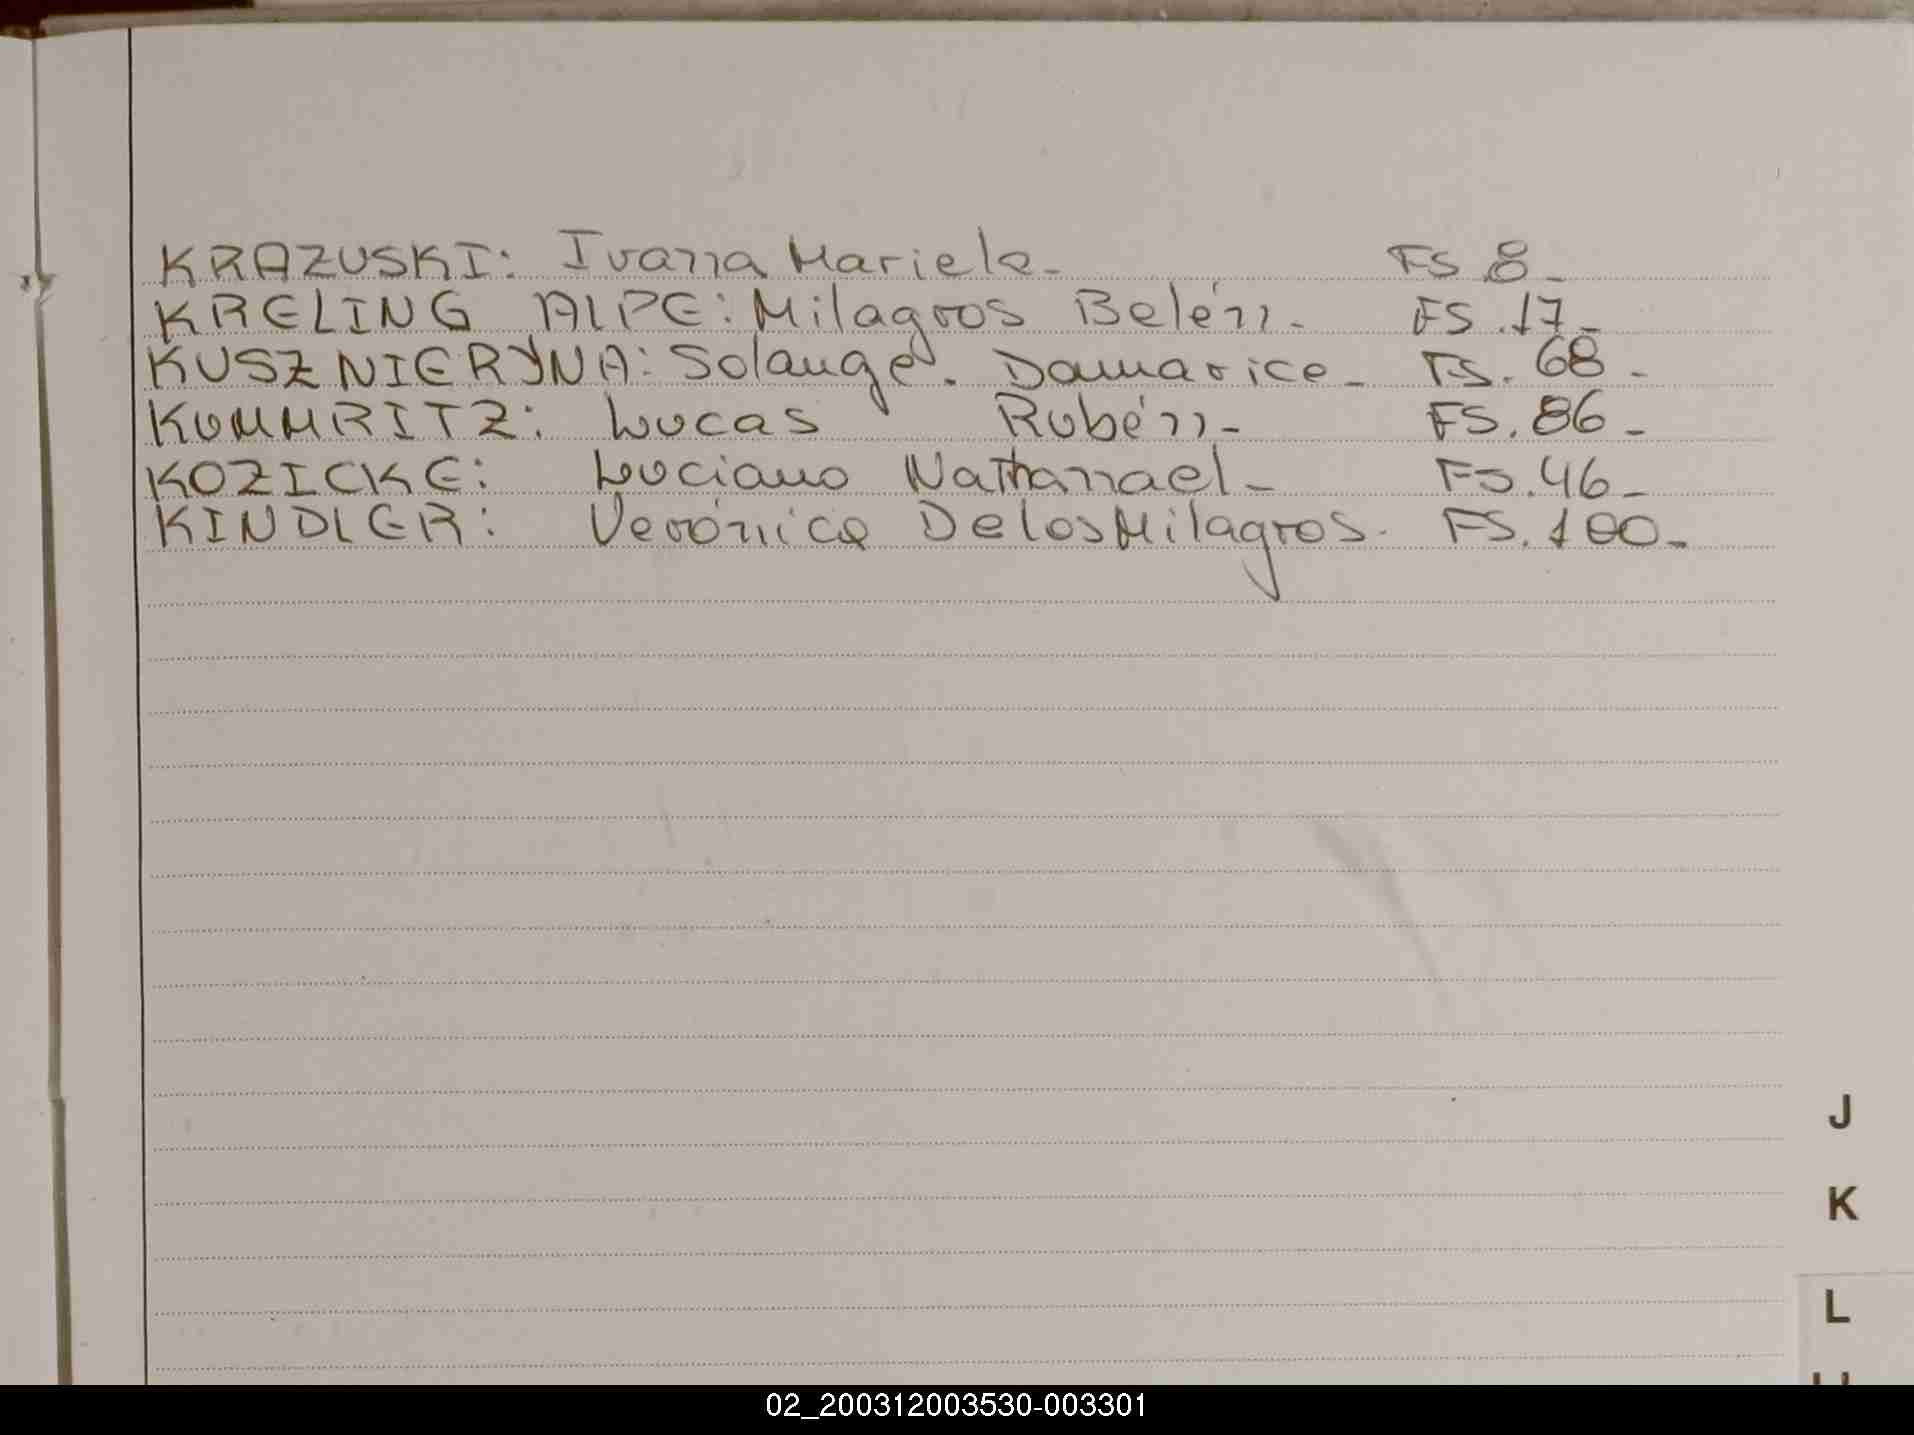 KRAZUSKI: Ivana Mariela- FS.8-
KRELING ALPE: Milagros Belén- FS.17-
KUSZNIERYNA: Solange. Damarice- FS.68-
KUMMRITZ: Lucas Rubén- FS.86-
KOZICKE: Luciano Nathanael- FS.46-
KINDLER: Verónica DelosMilagros- FS.100-
J
K
L
02_200312003530-003301